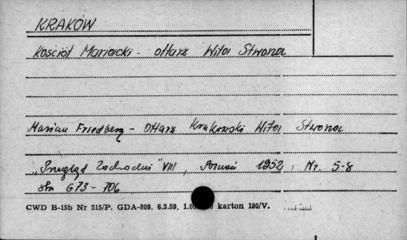 KRAKÓW
Kościół Mariacki - ołtarz Wita Stwosza
Marian Friedberg - Ołtarz Krakowski Wita Stwosza
"Przegląd Zachodni" VIII, Poznań 1952, Nr. 5-8
Str 673 - 706
CWD B-15b Nr 515/P. GDA-809. 6.3.59. karton 180/V.